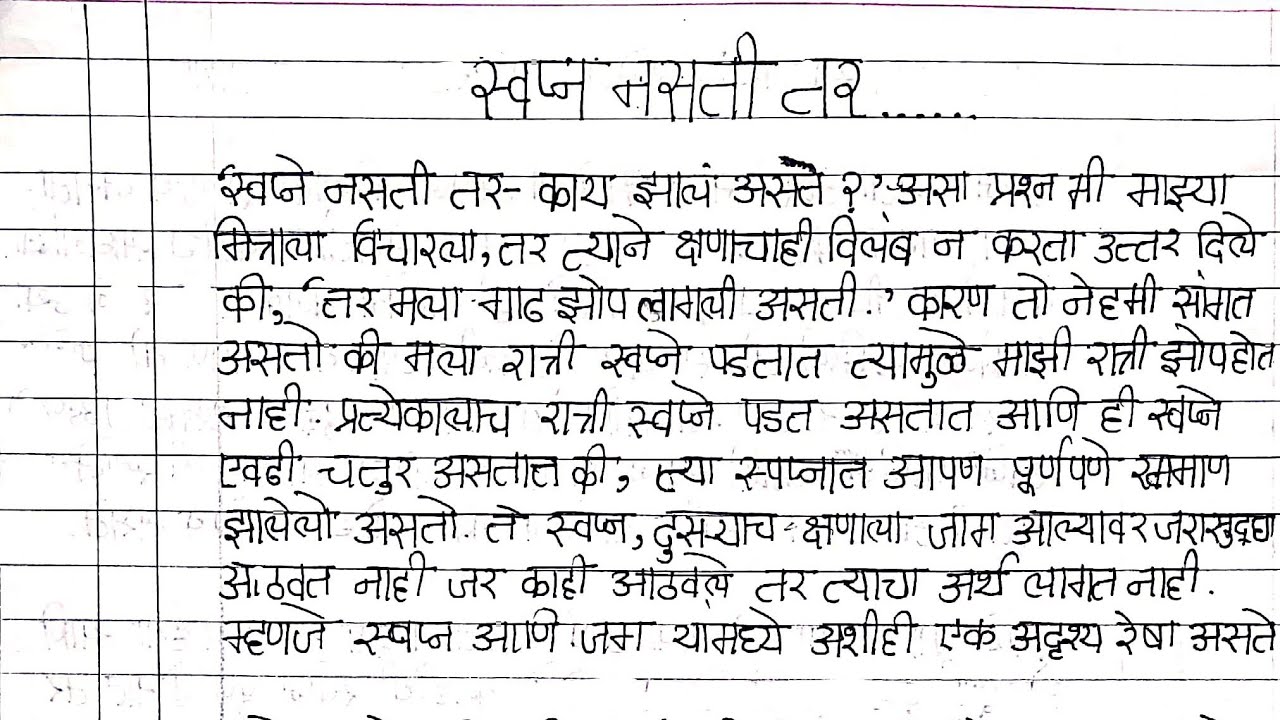 स्वप्न नसती तर......
'स्वप्ने नसती तर- काय झालं असते ?'-असा प्रश्न मी माझ्या
मित्राला विचारला, तर त्याने क्षणाचाही विलंब न करता उत्तर दिले
की, 'तर मला गाढ झोप लागली असती.' कारण तो नेहमी सांगत
असतो की मला रात्री स्वप्ने पडतात त्यामुळे माझी रात्री झोप होत
नाही. प्रत्येकालाच रात्री स्वप्ने पडत असतात आणि ही स्वप्ने
एवढी चतुर असतात की, त्या स्पप्नात आपण पूर्णपणे
झालेलो असतो. ते स्वप्न, दुसऱ्याच क्षणाला जाग आल्यावर जरासुद्धा
आठवत नाही जर काही आठवले तर त्याचा अर्थ लागत नाही.
म्हणजे स्वप्न आणि जग यामध्ये अशीही एक अदृश्य रेषा असते